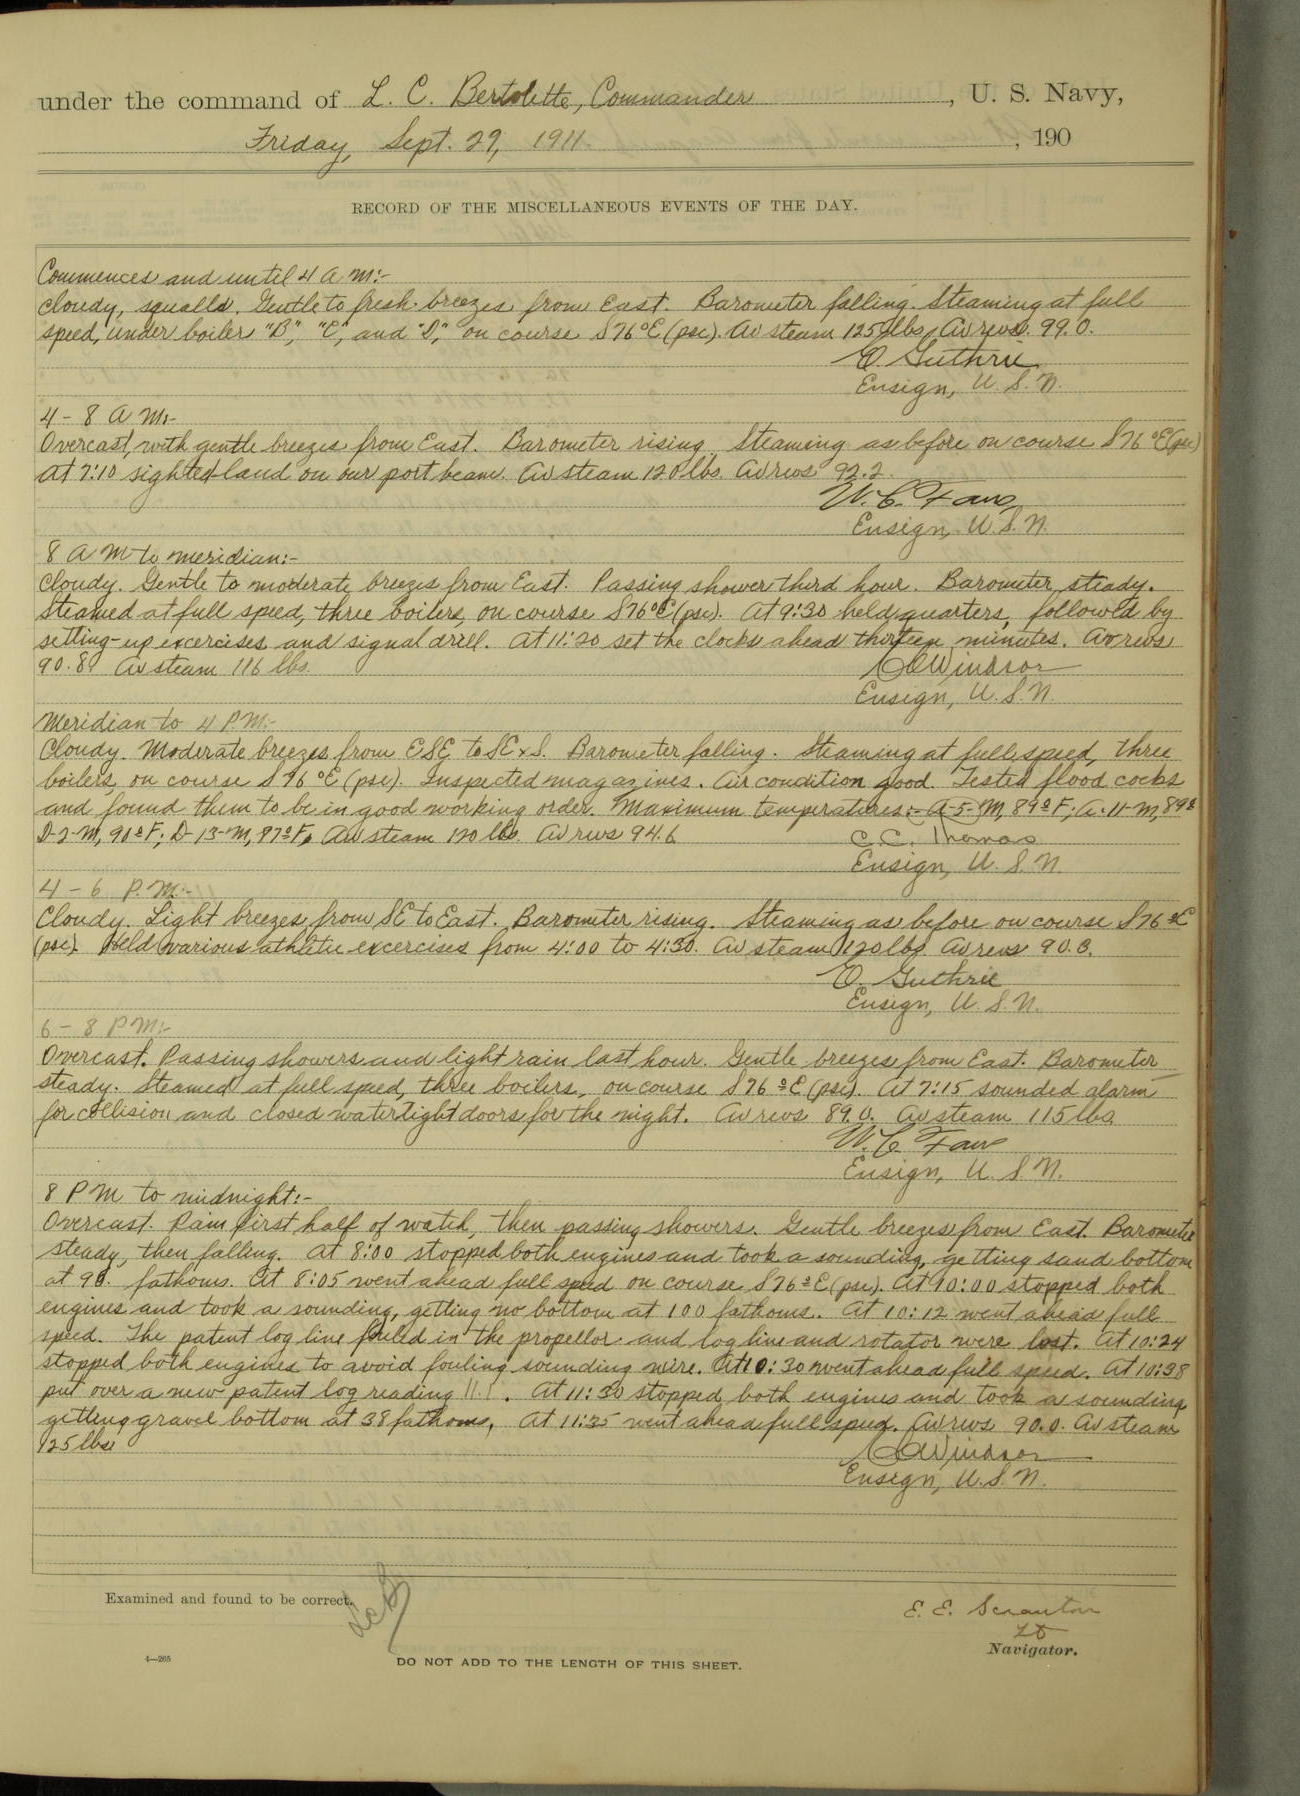 under the command of L. C. Bertolette, Commander, U. S. Navy,
Friday, Sept. 29, 1911. , 190
RECORD OF THE MISCELLANEOUS EVENTS OF THE DAY.
Commences and until 4 a m:-
Cloudy, squally. Gentle to fresh breezes from East. Barometer falling. Steaming at full
speed, under boiler "B", "C", and "D", on course S 76° E (psc). Av steam 125 lbs, Av revs. 99.0.
O. Guthrie
Ensign, U. S. N.
4 - 8 a m:-
Overcast, with gentle breezes from East. Barometer rising. Steaming as before on course S 76° E (psc)
At 7:10 sighted land on our port beam. Av steam 120 lbs. Av revs 92.2.
W. C.
Ensign, U. S. N.
8 A M to meridian:-
Cloudy. Gentle to moderate breezes from East. Passing shower third hour. Barometer steady.
Steamed at full speed, three boilers, on course S 76° E (psc). At 9:30 held quarters, followed by
setting-up excercises and signal drill. At 11:20 set the clocks ahead thirteen minutes. Av revs
90.8. Av steam 116 lbs.
Windsor
Ensign, U. S. N.
Meridian to 4 P.M:-
Cloudy. Moderate breezes from ESE to SE x S. Barometer falling. Steaming at full speed, three
boilers, on course S 76° E (psc). Inspected magazines. Air condition good. Tested flood cocks
and found them to be in good working order. Maximum temperatures:- A-5-M, 89° F; A-11-M, 89°
D-2-M, 91° F; D-13-M, 87° F, Av steam 120 lbs. Av revs 94.6
C. C. Thomas
Ensign, U. S. N.
4 - 6 P. M:-
Cloudy. Light breezes from SE to East. Barometer rising. Steaming as before on course S 76° E
(psc). Held various athletic excercises from 4:00 to 4:30. Av steam 120 lbs. Av revs 90.8.
O. Guthrie
Ensign, U. S. N.
6 - 8 P M:-
Overcast. Passing showers and light rain last hour. Gentle breezes from East. Barometer
steady. Steamed at full speed, three boilers, on course S 76° E (psc). At 7:15 sounded alarm
for collision and closed watertight doors for the night. Av revs 89.0. Av steam 115 lbs.
W. C.
Ensign, U. S. N.
8 P M to midnight:-
Overcast. Rain first half of watch, then passing showers. Gentle breezes from East. Barometer
steady, then falling. At 8:00 stopped both engines and took a sounding, getting sand bottom
at 98. fathoms. At 8:05 went ahead full speed on course S 76° E (psc). At 10:00 stopped both
engines and took a sounding, getting no bottom at 100 fathoms. At 10:12 went ahead full
speed. The patent log line fouled in the propellor and log line and rotator were lost. At 10:24
stopped both engines to avoid fouling sounding wire. At 10:30 went ahead full speed. At 10:38
put over a new patent log reading 11.1. At 11:30 stopped both engines and took a sounding
getting gravel bottom at 38 fathoms, At 11:35 went ahead full speed. Av revs 90.0. Av steam
125 lbs.
Windsor
Ensign, U. S. N.
Examined and found to be correct.
LCB
E. E. Scranton
Lt
Navigator.
4—265
DO NOT ADD TO THE LENGTH OF THIS SHEET.